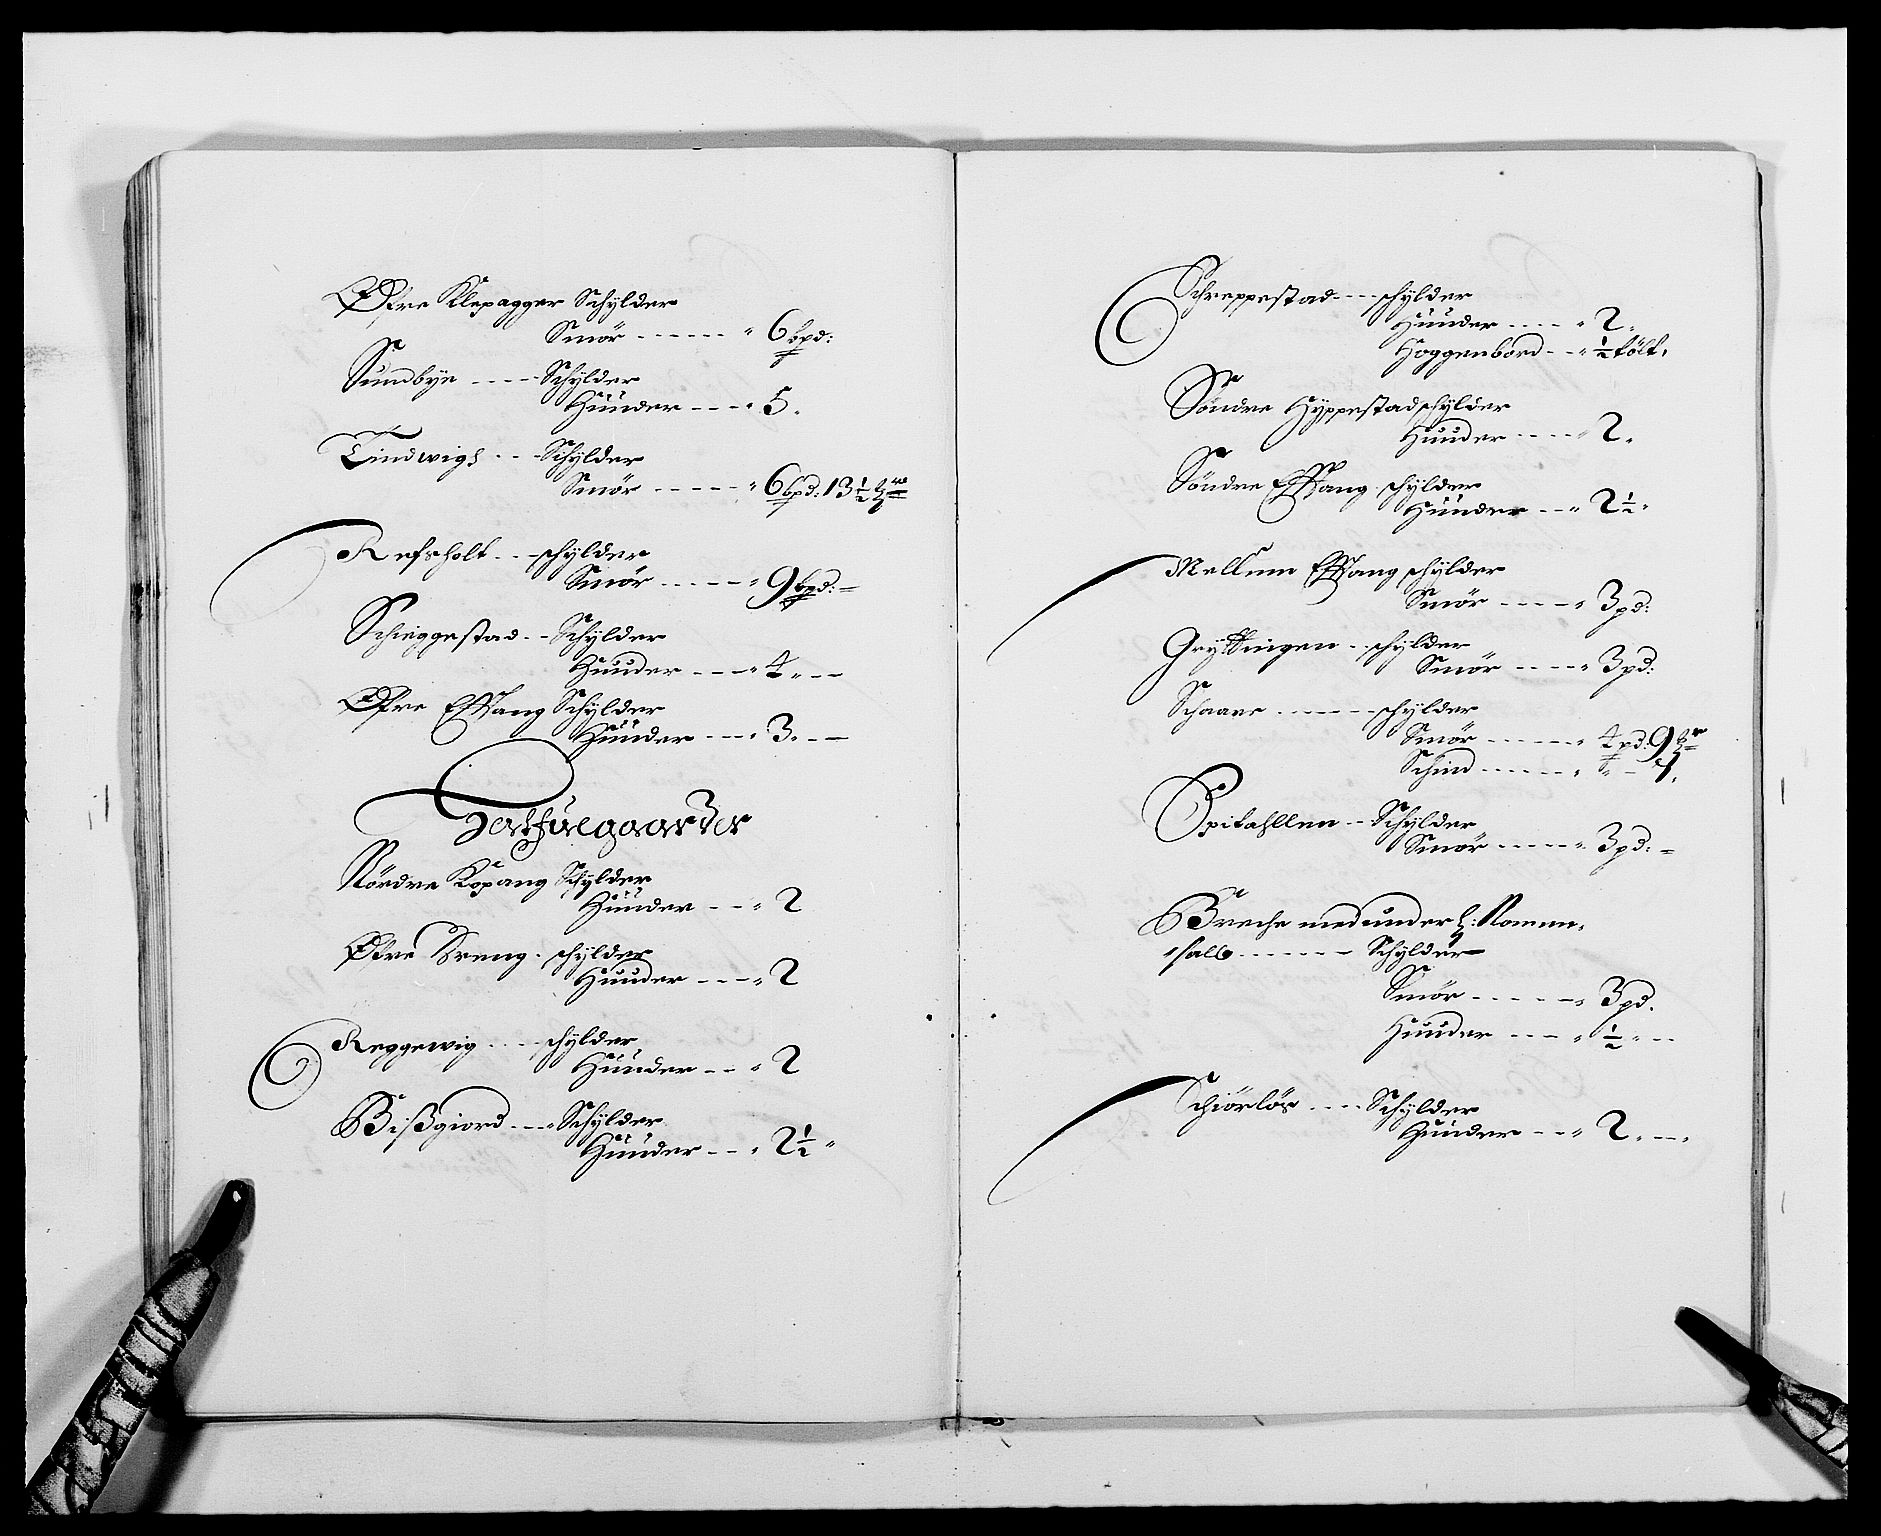 Øfre Klepagger Schylder
Smör ------ " 6 bpd:
Sundbye ---- Schylder
Huuder --- " 5.
Tindwigh --- Schylder
Smör ----- " 6 bpd: 13½
Refsholt --- schylder
Smör ----- " 9 bpd: -
Schieggestad -- Schylder
Huuder --- " 4. --
Øfre Effang Schylder
Huuder --- " 3. --
Halfuegaarder
Nördre Kopang Schylder
Huuder --- " 2
Øfre Sreng. schylder
Huuder --- " 2
Reggewig ---- schylder
Huuder --- " 2
Bißgiord --- Schylder
Huuder --- " 2½ "
Schreppestad --- schylder
Huuder ---- " 2.
Hoggenbord -- " ½ tölt.
Söndre Hyppestad schylder
Huuder ---- " 2.
Söndre Effang. schylder
Huuder --- " 2½ "
Mellum Effang schylder
Smör ---- " 3 pd:
Gryttingen -- schylder
Smör ----- " 3 pd:
Schaane ------ schylder
Smör ----- " 4 pd: 9
Schind ------ " - 1.
Spitahllen -- Schylder
Smör ----- " 3 pd: =
Breche med under h: Romm-
sall ------- Schylder
Smör ------ " 3 pd.
Huuder ---- " ½ " --
Schiörlös ---- Schylder
Huuder --- " 2. --